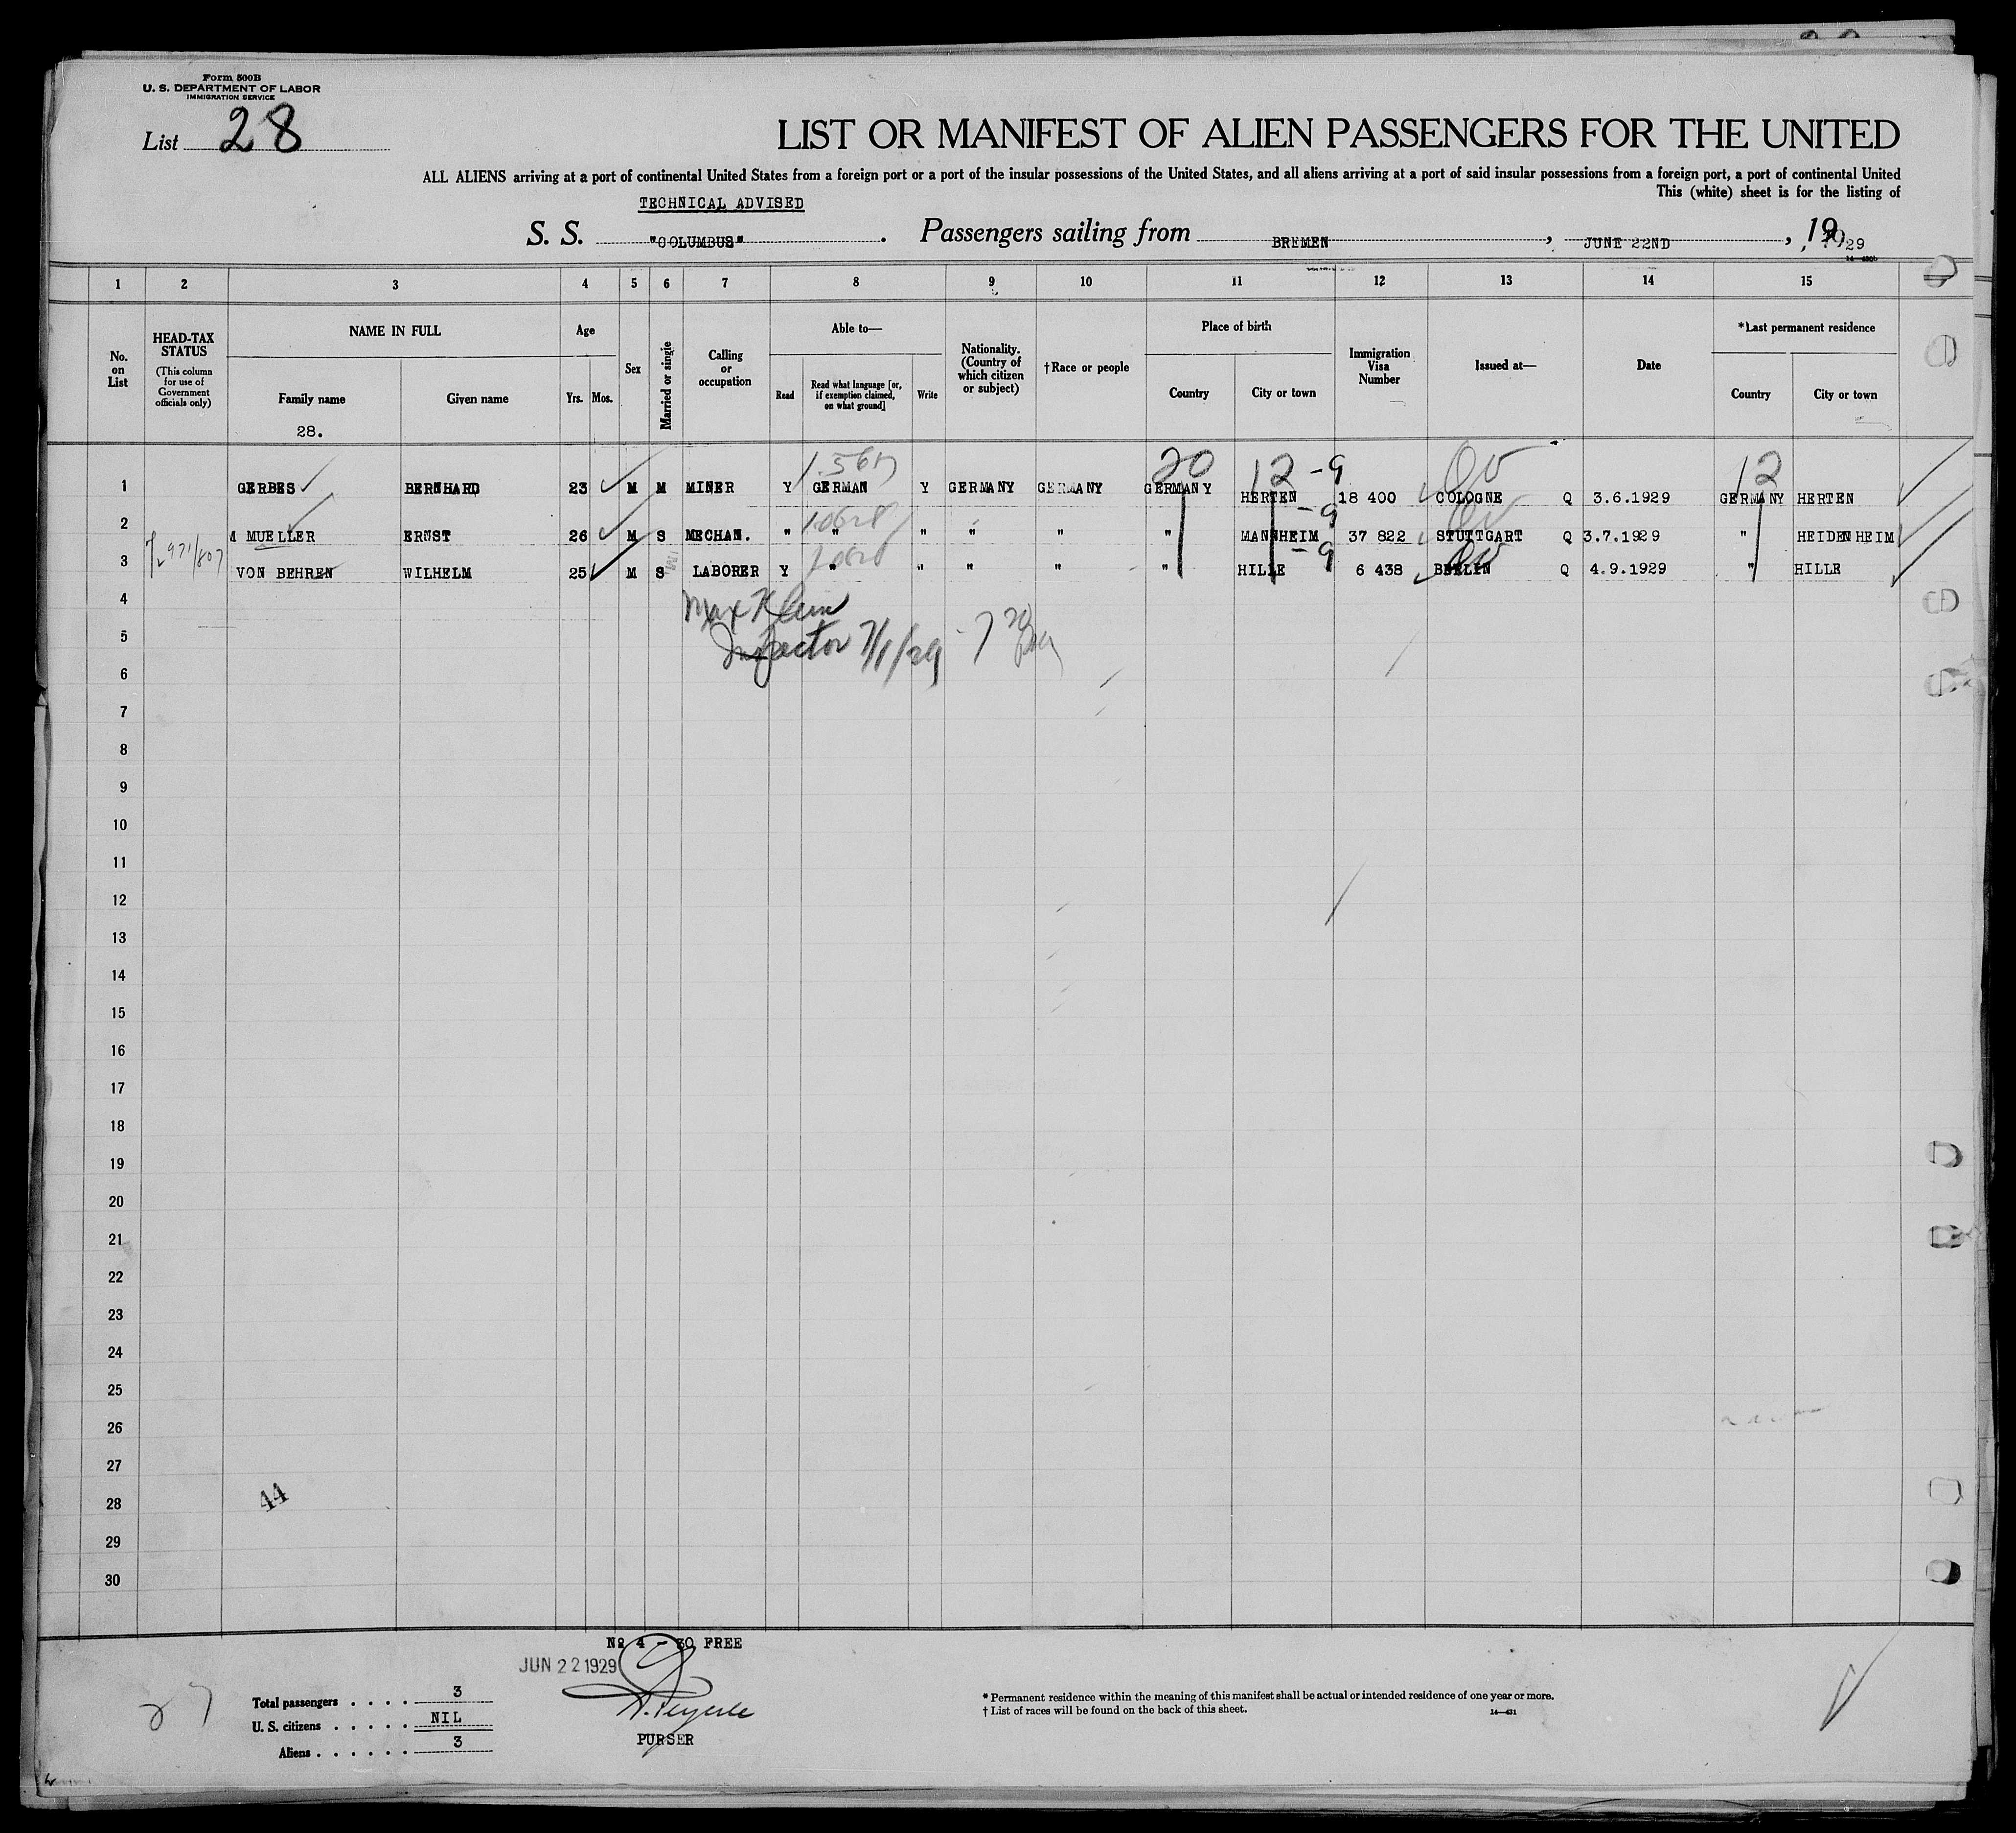 Form 500B
U. S. DEPARTMENT OF LABOR
IMMIGRATION SERVICE
List 28
LIST OR MANIFEST OF ALIEN PASSENGERS FOR THE UNITED
ALL ALIENS arriving at a port of continental United States from a foreign port or a port of the insular possessions of the United States, and all aliens arriving at a port of said insular possessions from a foreign port, a port of continental United
This (white) sheet is for the listing of
TECHNICAL ADVISED
S. S. "COLUMBUS". Passengers sailing from BREMEN, JUNE 22ND, 1929
1 2 3 4 5 6 7 8 9 10 11 12 13 14 15
No. on List
HEAD-TAX STATUS
(This column for use of Government officials only)
NAME IN FULL
Family name
Given name
28.
Age
Yrs. Mos.
Sex
Married or single
Calling or occupation
Able to—
Read
Read what language [or, if exemption claimed, on what ground]
Write
Nationality. (Country of which citizen or subject)
†Race or people
Place of birth
Country
City or town
Immigration Visa Number
Issued at—
Date
*Last permanent residence
Country
City or town
20 12 -9 12
1 GERBES BERNHARD 23 M M MINER Y GERMAN Y GERMANY GERMANY GERMANY HERTEN 18 400 COLOGNE Q 3.6.1929 GERMANY HERTEN
-9
2 MUELLER ERNST 26 M S MECHAN. " " " " " " MANNHEIM 37 822 STUTTGART Q 3.7.1929 " HEIDENHEIM
-9
3 VON BEHREN WILHELM 25 M S LABORER Y " " " " " HILLE 6 438 BERLIN Q 4.9.1929 " HILLE
4 Max Klein
5 Inspector 7/1/29
6
7
8
9
10
11
12
13
14
15
16
17
18
19
20
21
22
23
24
25
26
27
28 44
29
30
No 4 - 30 FREE
JUN 22 1929
27
Total passengers . . . . 3
U. S. citizens . . . . . NIL
Aliens . . . . . . 3
PURSER
* Permanent residence within the meaning of this manifest shall be actual or intended residence of one year or more.
† List of races will be found on the back of this sheet.
14—431